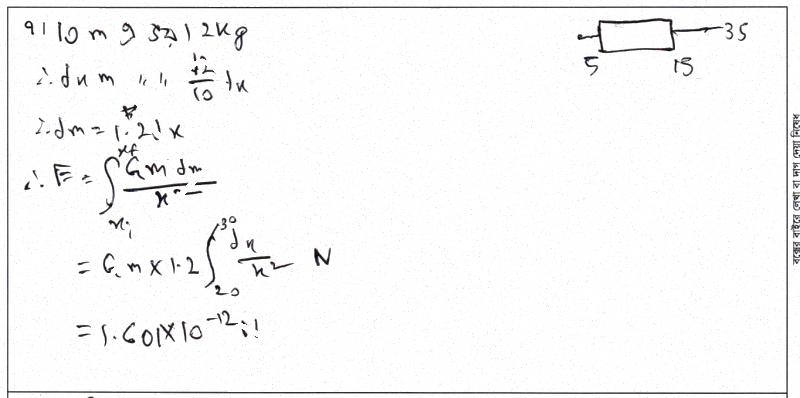 ৭। 10 m এ ভর 12 kg
∴ dx m " " 12/10 dx
∴ dm = 1.2 dx
∴ F = ∫_{xi}^{xf} G m dm / x²
= G m × 1.2 ∫_{20}^{30} dx / x² N
= 1.601 × 10^{-12}
5 15 35
বক্সের বাইরে লেখা বা দাগ দেয়া নিষেধ